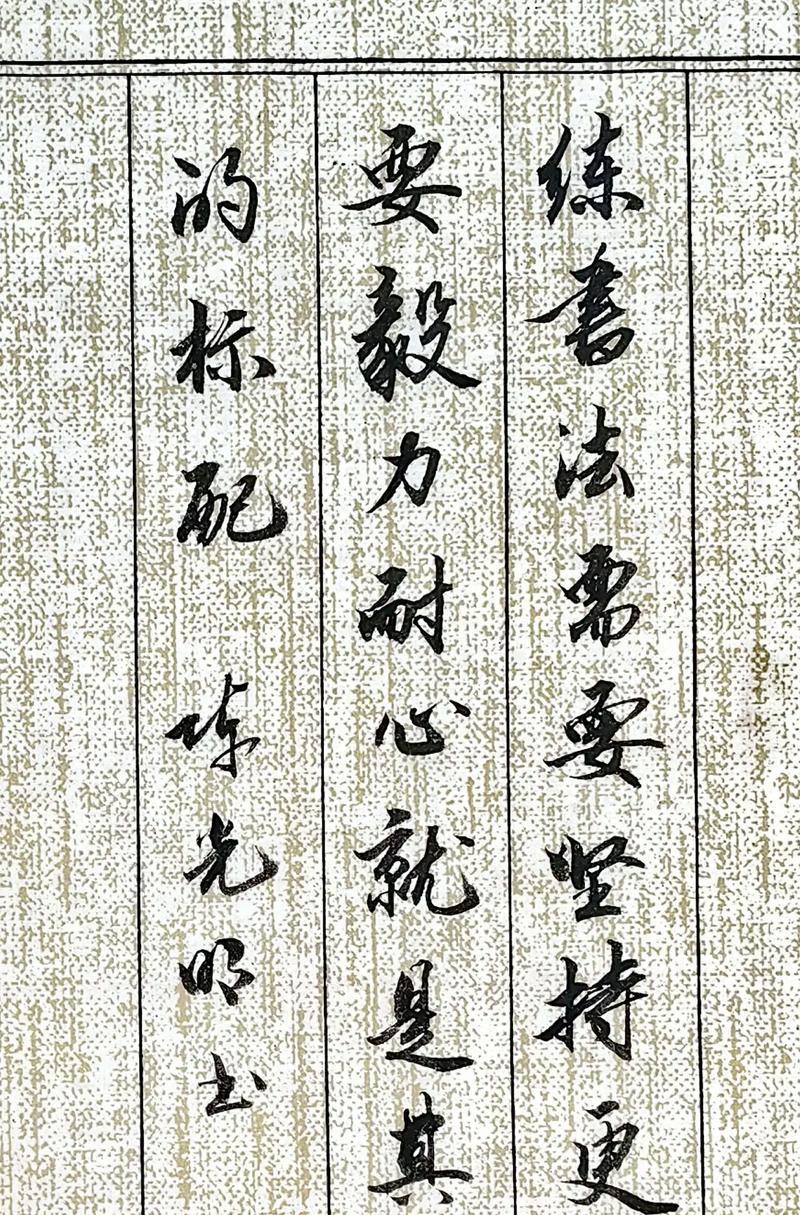 练书法需要坚持更
要毅力耐心就是其
的标配 陈光明书